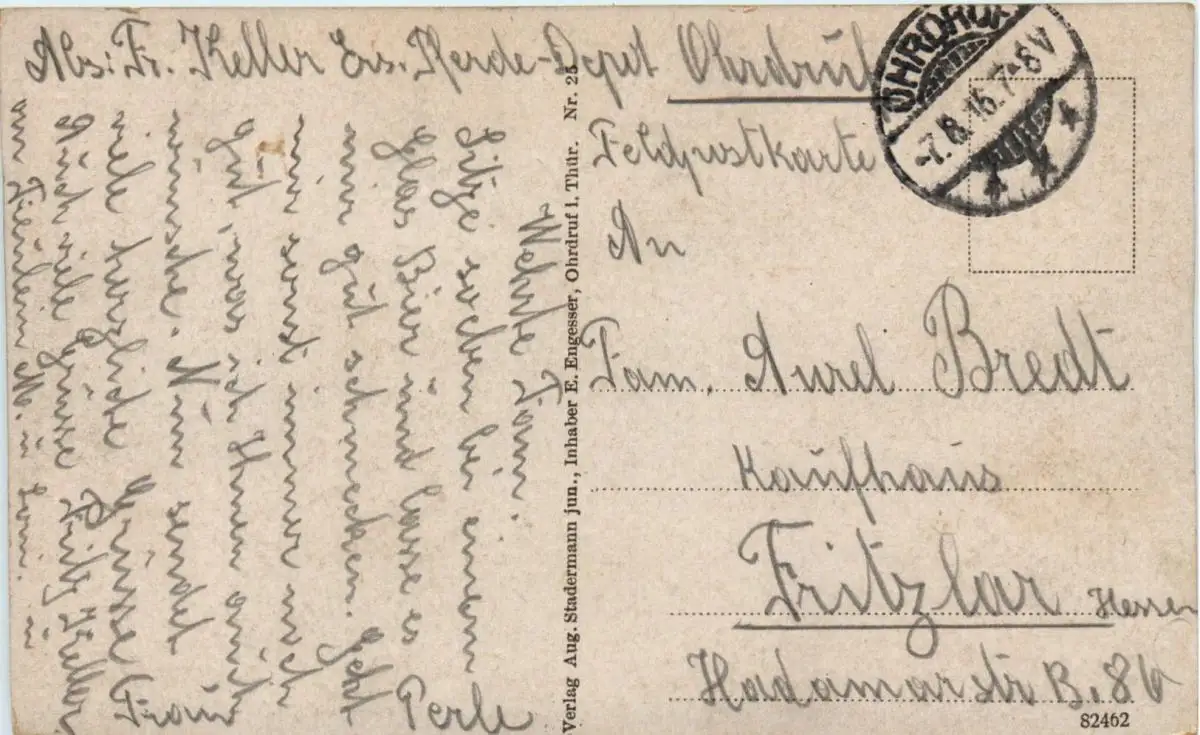 Abs: Fr. Keller Ers. Pferde-Depot Ohrdruf
OHRDRUF
-7.8.16.7-8V
Feldpostkarte
An
Fam. Aurel Bredt
Kaufhaus
Fritzlar Hessen
Hadamarstr B. 8b
82462
Verlag Aug. Stadermann jun., Inhaber E. Engesser, Ohrdruf i. Thür. Nr. 25
Fam.
Sitze soeben bei einem
Glas Bier und lasse es
mir gut schmecken. Geht
mir sonst immer noch
gut, was ich Ihnen auch
wünsche. Nun sendet
viele herzliche Grüsse
Fritz Keller
Auch viele Grüsse
an Fräulein M. u.
Frau Perle